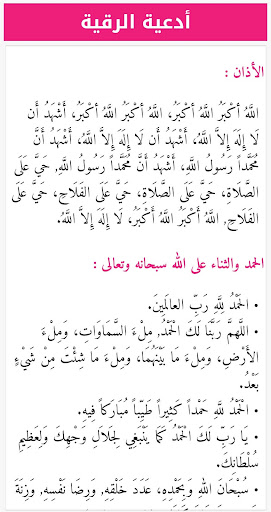 أدعية الرقية
الأذان :
اللَّهُ أكْبَرُ اللَّهُ أكْبَرُ، اللَّهُ أكْبَرُ اللَّهُ أكْبَرُ، أَشْهَدُ أَن
لا إِلَهَ إِلاَّ اللَّهُ، أَشْهَدُ أَن لا إِلَهَ إِلاَّ اللَّهُ، أَشْهَدُ أَنَّ
مُحَمَّداً رَسُولُ اللَّهِ، أَشْهَدُ أَنَّ مُحَمَّداً رَسُولُ اللَّهِ, حَيَّ عَلَى
الصَّلَاةِ، حَيَّ عَلَى الصَّلَاةِ، حَيَّ عَلَى الفَلَاحِ، حَيَّ عَلَى
الفَلَاحِ, اللَّهُ أَكْبَرُ اللَّهُ أَكْبَرُ، لَا إِلَهَ إِلاَّ اللَّهُ.
الحمد والثناء على الله سبحانه وتعالى :
• الحَمْدُ لِلَّهِ رَبِّ العالَمِينَ.
• اللَّهمَّ رَبَّنَا لَكَ الحَمْدُ, مِلءَ السَّمَاوَاتِ، وَمِلءَ
الأَرْضِ، وَمِلءَ مَا بَيْنَهُمَا، وَمِلءَ مَا شِئْتَ مِنْ شَيْءٍ
بَعْدُ.
• الحَمْدُ للَّهِ حَمْداً كَثِيراً طَيِّباً مُبَارَكاً فِيهِ.
• يَا رَبِّ لَكَ الحَمْدُ كَمَا يَنْبَغِي لِجَلَالِ وَجْهِكَ وَلِعَظِيمِ
سُلْطَانِكَ.
• سُبْحَانَ اللهِ وَبِحَمْدِهِ, عَدَدَ خَلْقِهِ, وَرِضَا نَفْسِهِ, وَزِنَةَ